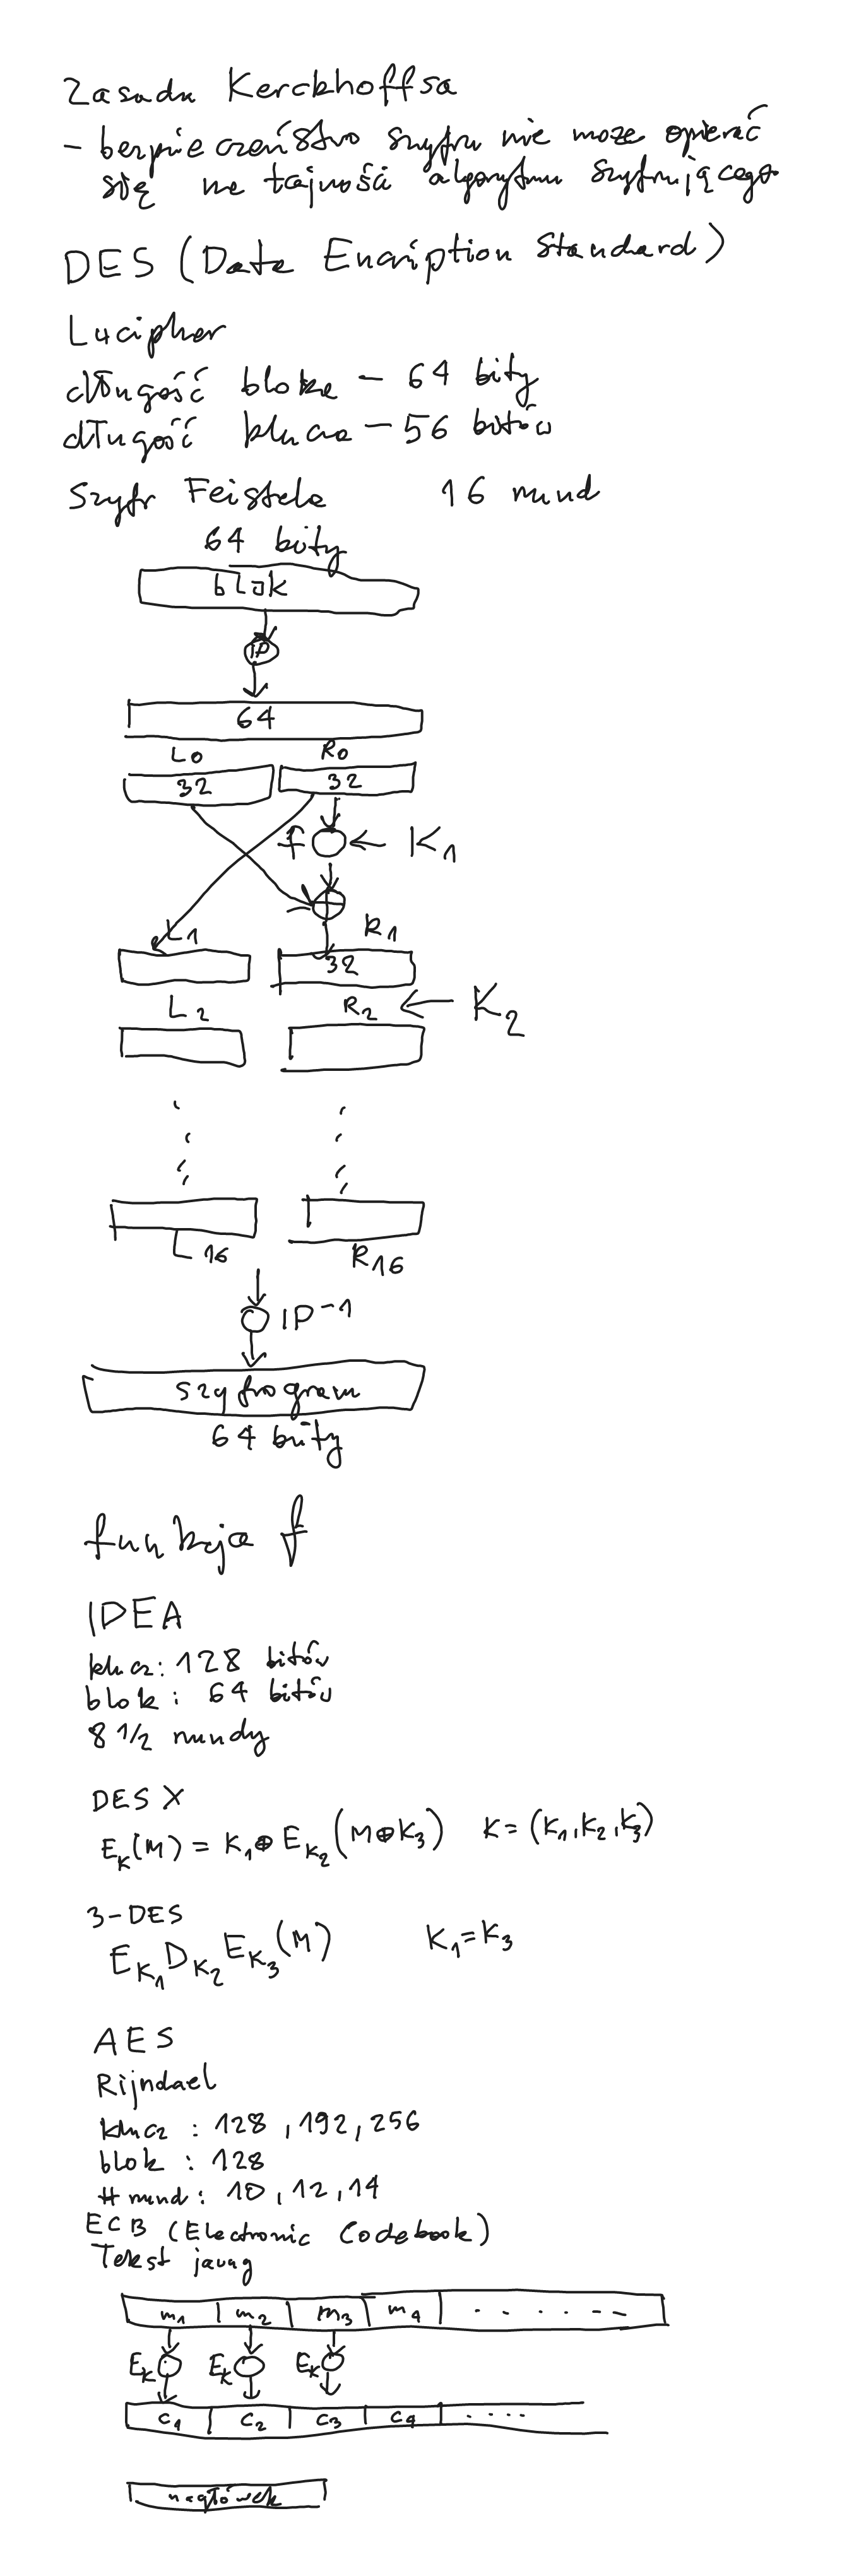 Zasada Kerckhoffsa
- bezpieczeństwo szyfru nie może opierać
się na tajności algorytmu szyfrującego.
DES (Data Encription Standard)
Lucipher
długość bloku - 64 bity
długość klucza - 56 bitów
Szyfr Feistela 16 rund
64 bity
blok
IP
64
L0 R0
32 32
f ← K1
⊕
L1 R1
32
L2 R2 ← K2
L16 R16
IP-1
szyfrogram
64 bity
funkcja f
IDEA
klucz: 128 bitów
blok: 64 bitów
8 1/2 rundy
DES X
EK(M) = K1⊕EK2(M⊕K3) K=(K1,K2,K3)
3-DES
EK1DK2EK3(M) K1=K3
AES
Rijndael
klucz : 128, 192, 256
blok : 128
# rund: 10, 12, 14
ECB (Electronic Codebook)
Tekst jawny
m1 m2 m3 m4 . . . . - -
EK EK EK
c1 c2 c3 c4 . . . .
nagłówek